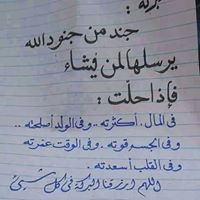 البركة :
جند من جنود الله
يرسلها لمن يشاء
فإذا حلت :
فى المال .. أكثرته .. وفى الولد أصلحته ..
وفى الجسم قوته .. وفى الوقت عمرته
وفى القلب أسعدته ..
اللهم ارزقنا البركة فى كل شىء